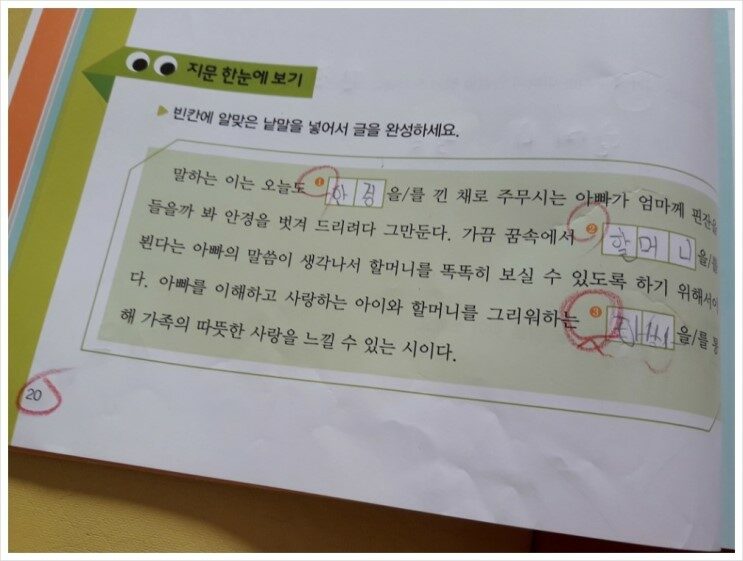 지문 한눈에 보기
빈칸에 알맞은 낱말을 넣어서 글을 완성하세요.
말하는 이는 오늘도 ❶ 을/를 낀 채로 주무시는 아빠가 엄마께 핀잔을
들을까 봐 안경을 벗겨 드리려다 그만둔다. 가끔 꿈속에서 ❷ 할머니 을/를
뵌다는 아빠의 말씀이 생각나서 할머니를 똑똑히 보실 수 있도록 하기 위해서이
다. 아빠를 이해하고 사랑하는 아이와 할머니를 그리워하는 ❸ 을/를 통
해 가족의 따뜻한 사랑을 느낄 수 있는 시이다.
20